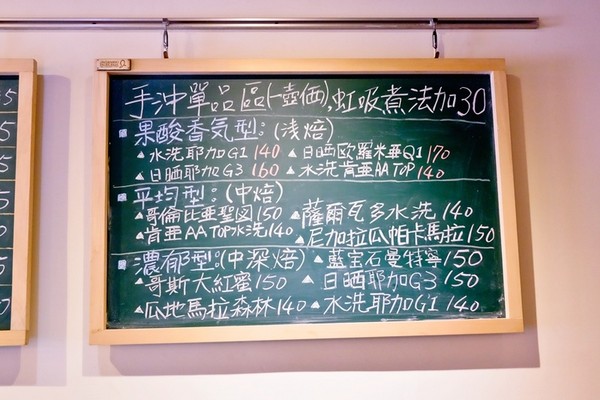 手沖單品區(一壺価),虹吸煮法加30
果酸香気型:(浅焙)
▲水洗耶加G1 140 ▲日晒歐羅米亜Q1 170
▲日晒耶加G3 160 ▲水洗肯亜AA TOP 140
平均型:(中焙)
▲哥倫比亜聖図150 ▲薩爾瓦多水洗 140
▲肯亜AA TOP水洗140 ▲尼加拉瓜帕卡馬拉150
濃郁型:(中深焙) ▲藍宝石曼特寧150
▲哥斯大紅蜜150 ▲日晒耶加G3 150
▲瓜地馬拉森林140 ▲水洗耶加G1 140
5
5
5
5
5